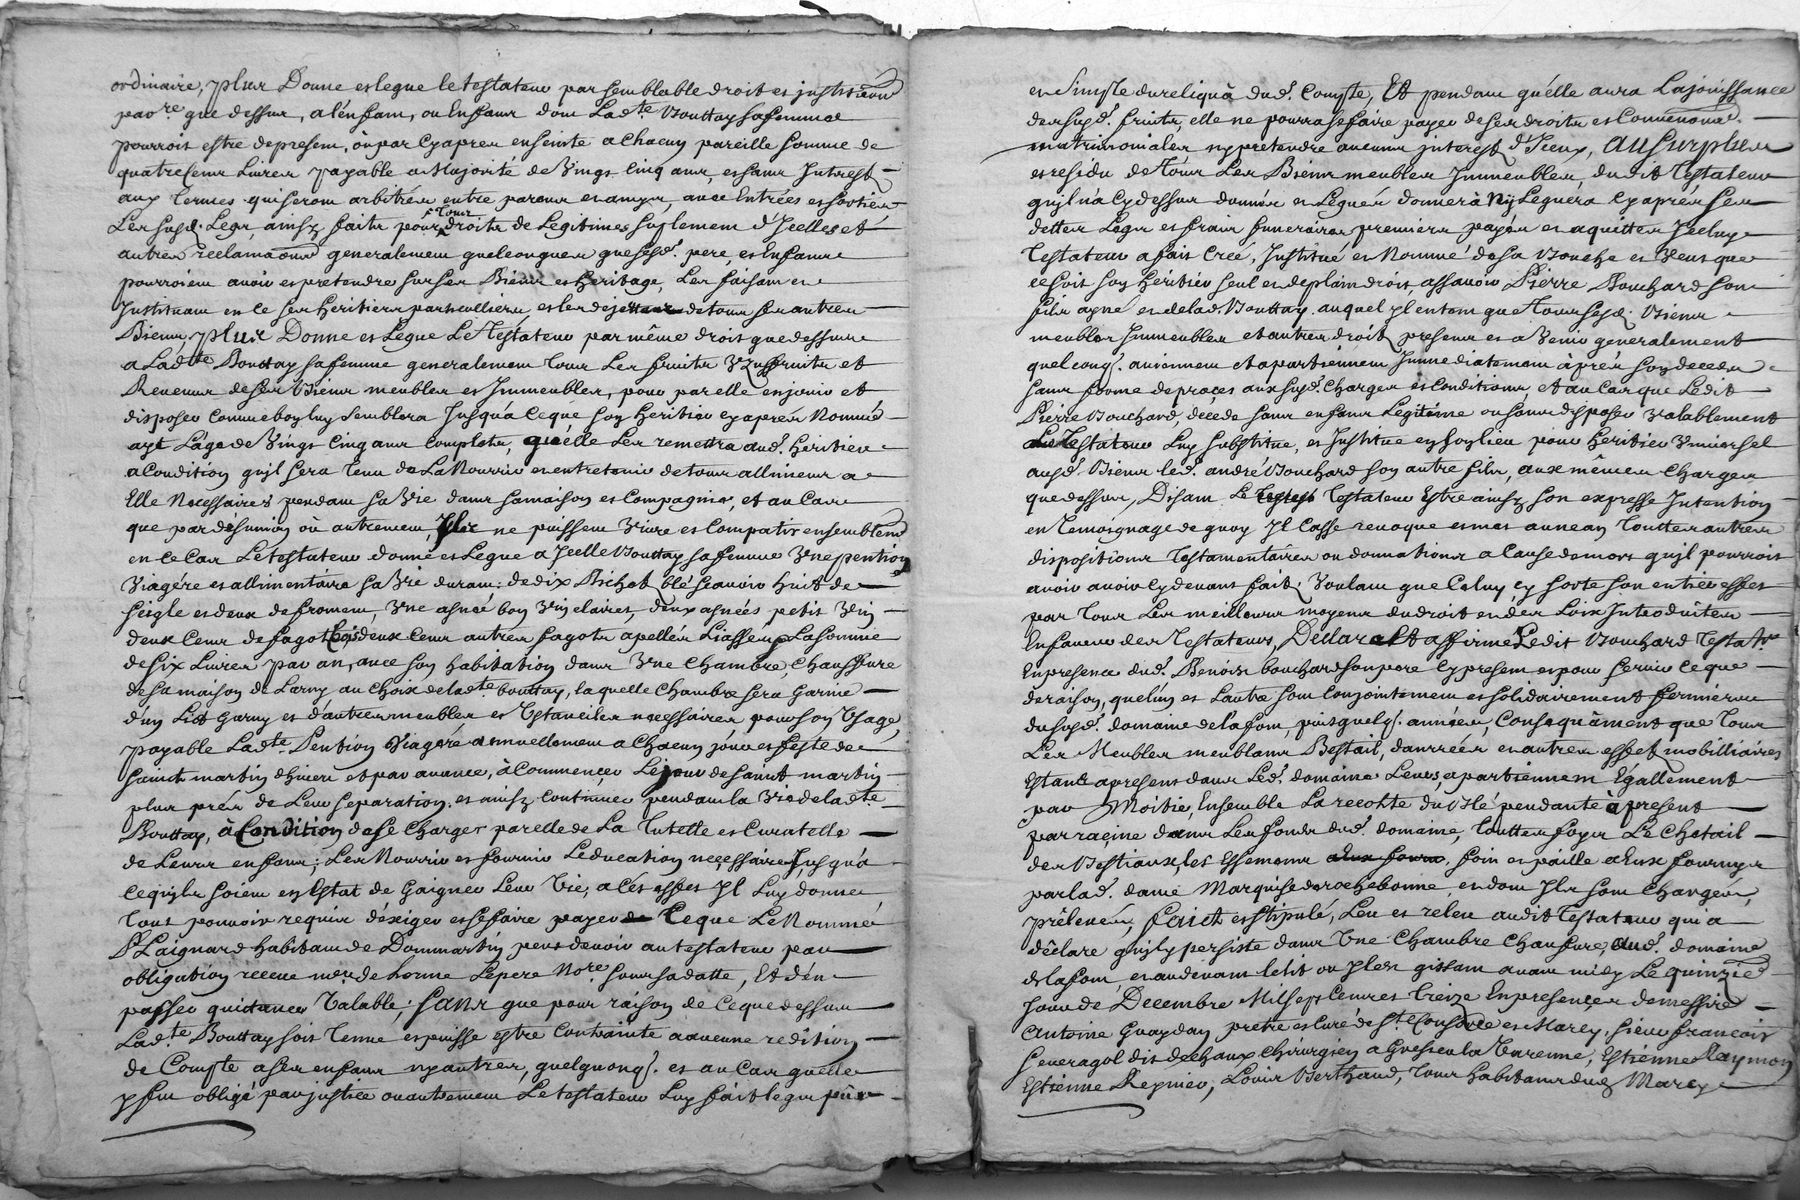 ordinaire, plus Donne et legue le testateur par semblable droit et institution
par.re que dessus, a l'enfant, ou Enfans dont Lad.te Bouttay sa femme
pourroit estre de present, ou par cy apres enseinte a chacun pareille somme de
quatre cens Livres payable a Majorité de Vingt Cinq ans, et sans Interest
aux termes qui seront arbitrés entre parens et amys, avec Entrées et sorties
Les susd. Legs, ainsy faits pour tous droits de Legitimes suplement d'Icelles et
autres reclamaons generalement quelconques que sesd. pere, et Enfans
pourroient avoir et pretendre sur ses Biens et heritage, Les faisant et
Instituant en ce ses heritiers particulliers, et les dejettans de tous ses autres
Biens, plus Donne et Legue Le Testateur par même droit que dessus
a Ladte Bouttay sa femme generalement tous Les fruits Vzuffruits et
Revenus de ses Biens meubles et Immeubles, pour par elle en jouir et
disposer comme bon luy semblera Jusqu'a ce que son heritier cy apres Nommé
ayt L'age de Vingt Cinq ans complets, qu'elle Les remettra aud. heritier
a Condition qu'il sera tenu de La Nourrir et entretenir de tous allimens a
Elle Necessaires pendant sa Vie dans sa maison et Compagnie, et au Cas
que par désunion où autrement, Ils ne puissent Vivre et Compatir ensemblem
en ce Cas Le testateur donne et Legue a Icelle Bouttay sa femme Vne pention
Viagére et allimentaire sa Vie durant; de dix Bichet blé sçavoir huit de
seigle et deux de froment, Vne asnée bon Vin clairet, deux asnées petit Vin
deux Cens de fagots deux cens autres fagots apellés Liasses, La somme
de six Livres par an, avec son habitation dans Vne chambre, Chauffure
de sa maison de Larny au choix de lad.te bouttay, laquelle chambre sera garnie
d'un Lit garny et d'autres meubles et Vstanciles necessaires pour son Vsage,
payable Ladte. Pention Viagére annuellement a chacun jour et feste de
saint martin d'hiver et par avance, à Commencer Le jour de saint martin
plus prés de Leur separation, et ainsy continuer pendant la Vie de ladte
Bouttay, à Condition de se charger par elle de La Tutelle et Curatelle
de Leurs enfans; Les Nourrir et fournir L'education neçessaire Jusqu'a
ce qu'ils soient en Estat de Gaigner Leur Vie, a cés effet Il Luy donne
tout pouvoir requis d'éxiger et se faire payer de Ce que Le Nommé
Laignard habitant de Dommartin peut devoir au testateur par
obligation reçeue me de horme Le pere No.re sous sa datte, Et d'en
passer quictance Valable; Sans que pour raison de ce que dessus
Lad.te Bouttay soit tenue et puisse estre contrainte a aucune redition
de Compte a ses enfans ny autres, quelquonq. et au cas qu'elle
y fut obligé par justice ou autrement Le testateur Luy fait legs pur
et Simple du reliquà dud. Compte, Et pendant qu'elle aura La jouissance
des susd. fruits, elle ne pourra se faire payer de ses droits et Conventions
matrimoniales ny pretendre aucuns interest d'Iceux, Au surplus
et residu de tous Les Biens meubles Immeubles, dudit Testateur
qu'il n'a Cy dessus donnés et Legués donnerà Ny Leguera Cy aprés ses
dettes Legs et frais funeraires premiers payés et aquittés Iceluy
Testateur a fait Créé, Institué et Nommé de sa Bouche et Veut que
ce soit son héritier seul et de plain droit, assavoir Pierre Bouchard son
fils ayné et de lad. Bouttay, auquel Il entend que tous sesd. Biens
meubles Immeubles et autres droits presens et a Venir generalement
quelconq. aviennent et apartiennent Immediatement aprés son deceds
sans forme de proces aux susd. Charges et Conditions, et au Cas que Ledit
Pierre Bouchard decede sans enfans Legitime ou sans disposer Valablement
Le Testateur Luy substitue, et Institue en son lieu pour heritier Vniversel
ausd. Biens led. andré Bouchard son autre fils, aux mêmes charges
que dessus, Disant Le Testateur Estre ainsy son expresse Intention
en temoignage de quoy Il Casse revoque et met au neant Touttes autres
dispositions Testamentaires ou donnations a Cause de mort qu'il pourroit
avoir avoir Cy devant fait; Voulant que Celuy cy sorte son entier effet
par tous Les meilleurs moyens du droit et des Loix Introduites
En faveur des Testateurs, Declarant et affirme Ledit Bouchard Testa.tr
En presence dud. Benoist bouchard son pere Cy present et pour servir ce que
de raison, que lun et Lautre sont Conjointement et solidairement fermiers
du susd. domaine de lafont, puis quelq. années, Consequâment que tous
Les Meubles meublans Bestail, danrrées et autres effets mobilliaires
Estant apresent dans Led. domaine Leurs apartiennent Egallement
par Moitié, Ensemble La recolte du Blé pendante à present
par raçine dans Les fonds dud. domaine, touttes foys Le Chetail
des Bestiaux, les Essemans foin et paille a Eux fournys
par lad. dame Marquise de rochebonne, et dont Ils sont Charges,
prélevés, faict et Stipulé, Leu et releu audit Testateur qui a
déclare qu'il y persiste dans Vne Chambre Chaufure, dud. domaine
de lafont, et au devant le lit ou Il est gissant avant midy Le quinzie
jour de Decembre Mil sept Cens treize En presences de messire
Antoine Guaydan pretre et curé de St. Consorce et Marcy, sieur françois
severagol dit dechaux chirurgien a Gresieu la Varenne, Estienne Raymon
Estienne Regnier, Louis Berthaud, tous habitans dud. Marcy